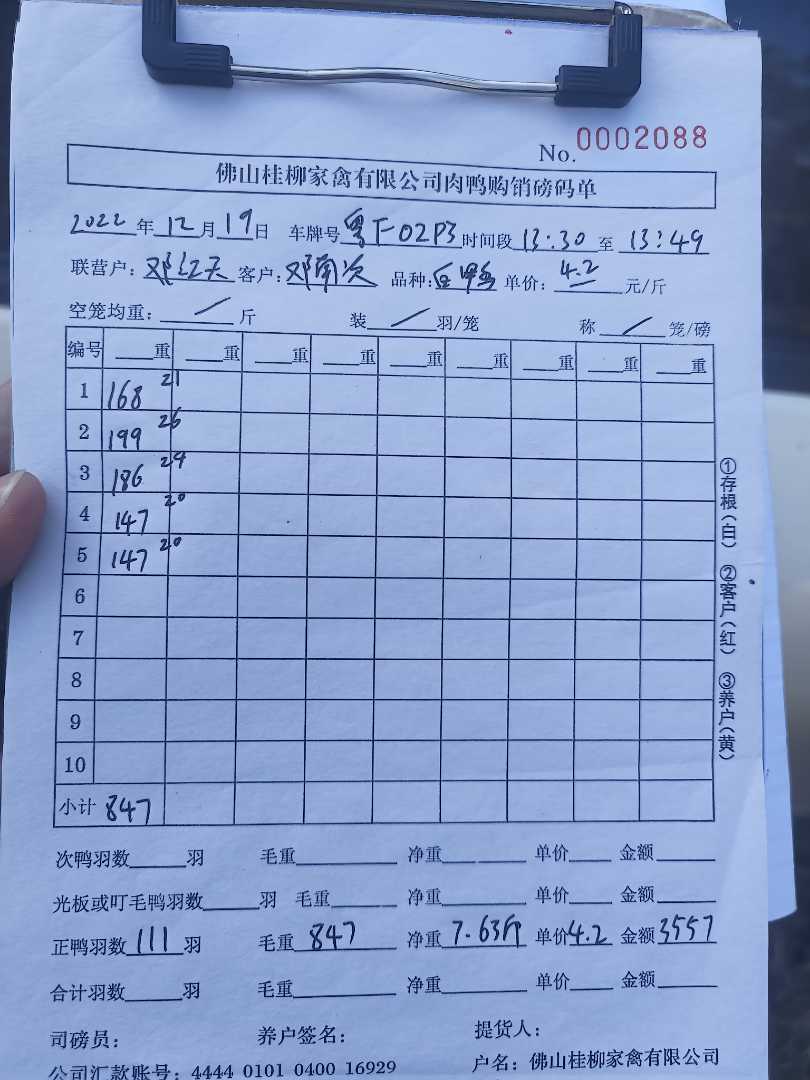 No. 0002088
佛山桂柳家禽有限公司肉鸭购销磅码单
2022年12月19日 车牌号粤F-02P3时间段13:30至13:49
联营户:邓红天客户:邓南次 品种:白鸭 单价:4.2元/斤
空笼均重:/斤 装/羽/笼 称/笼/磅
编号 重 重 重 重 重 重 重 重 重
1 168 21
2 199 26
3 186 24
4 147 20
5 147 20
6
7
8
9
10
小计 847
次鸭羽数 羽 毛重 净重 单价 金额
光板或叮毛鸭羽数 羽 毛重 净重 单价 金额
正鸭羽数111羽 毛重847 净重7.63斤 单价4.2 金额3557
合计羽数 羽 毛重 净重 单价 金额
司磅员: 养户签名: 提货人:
公司汇款账号:4444 0101 0400 16929 户名:佛山桂柳家禽有限公司
①存根(白) ②客户(红) ③养户(黄)